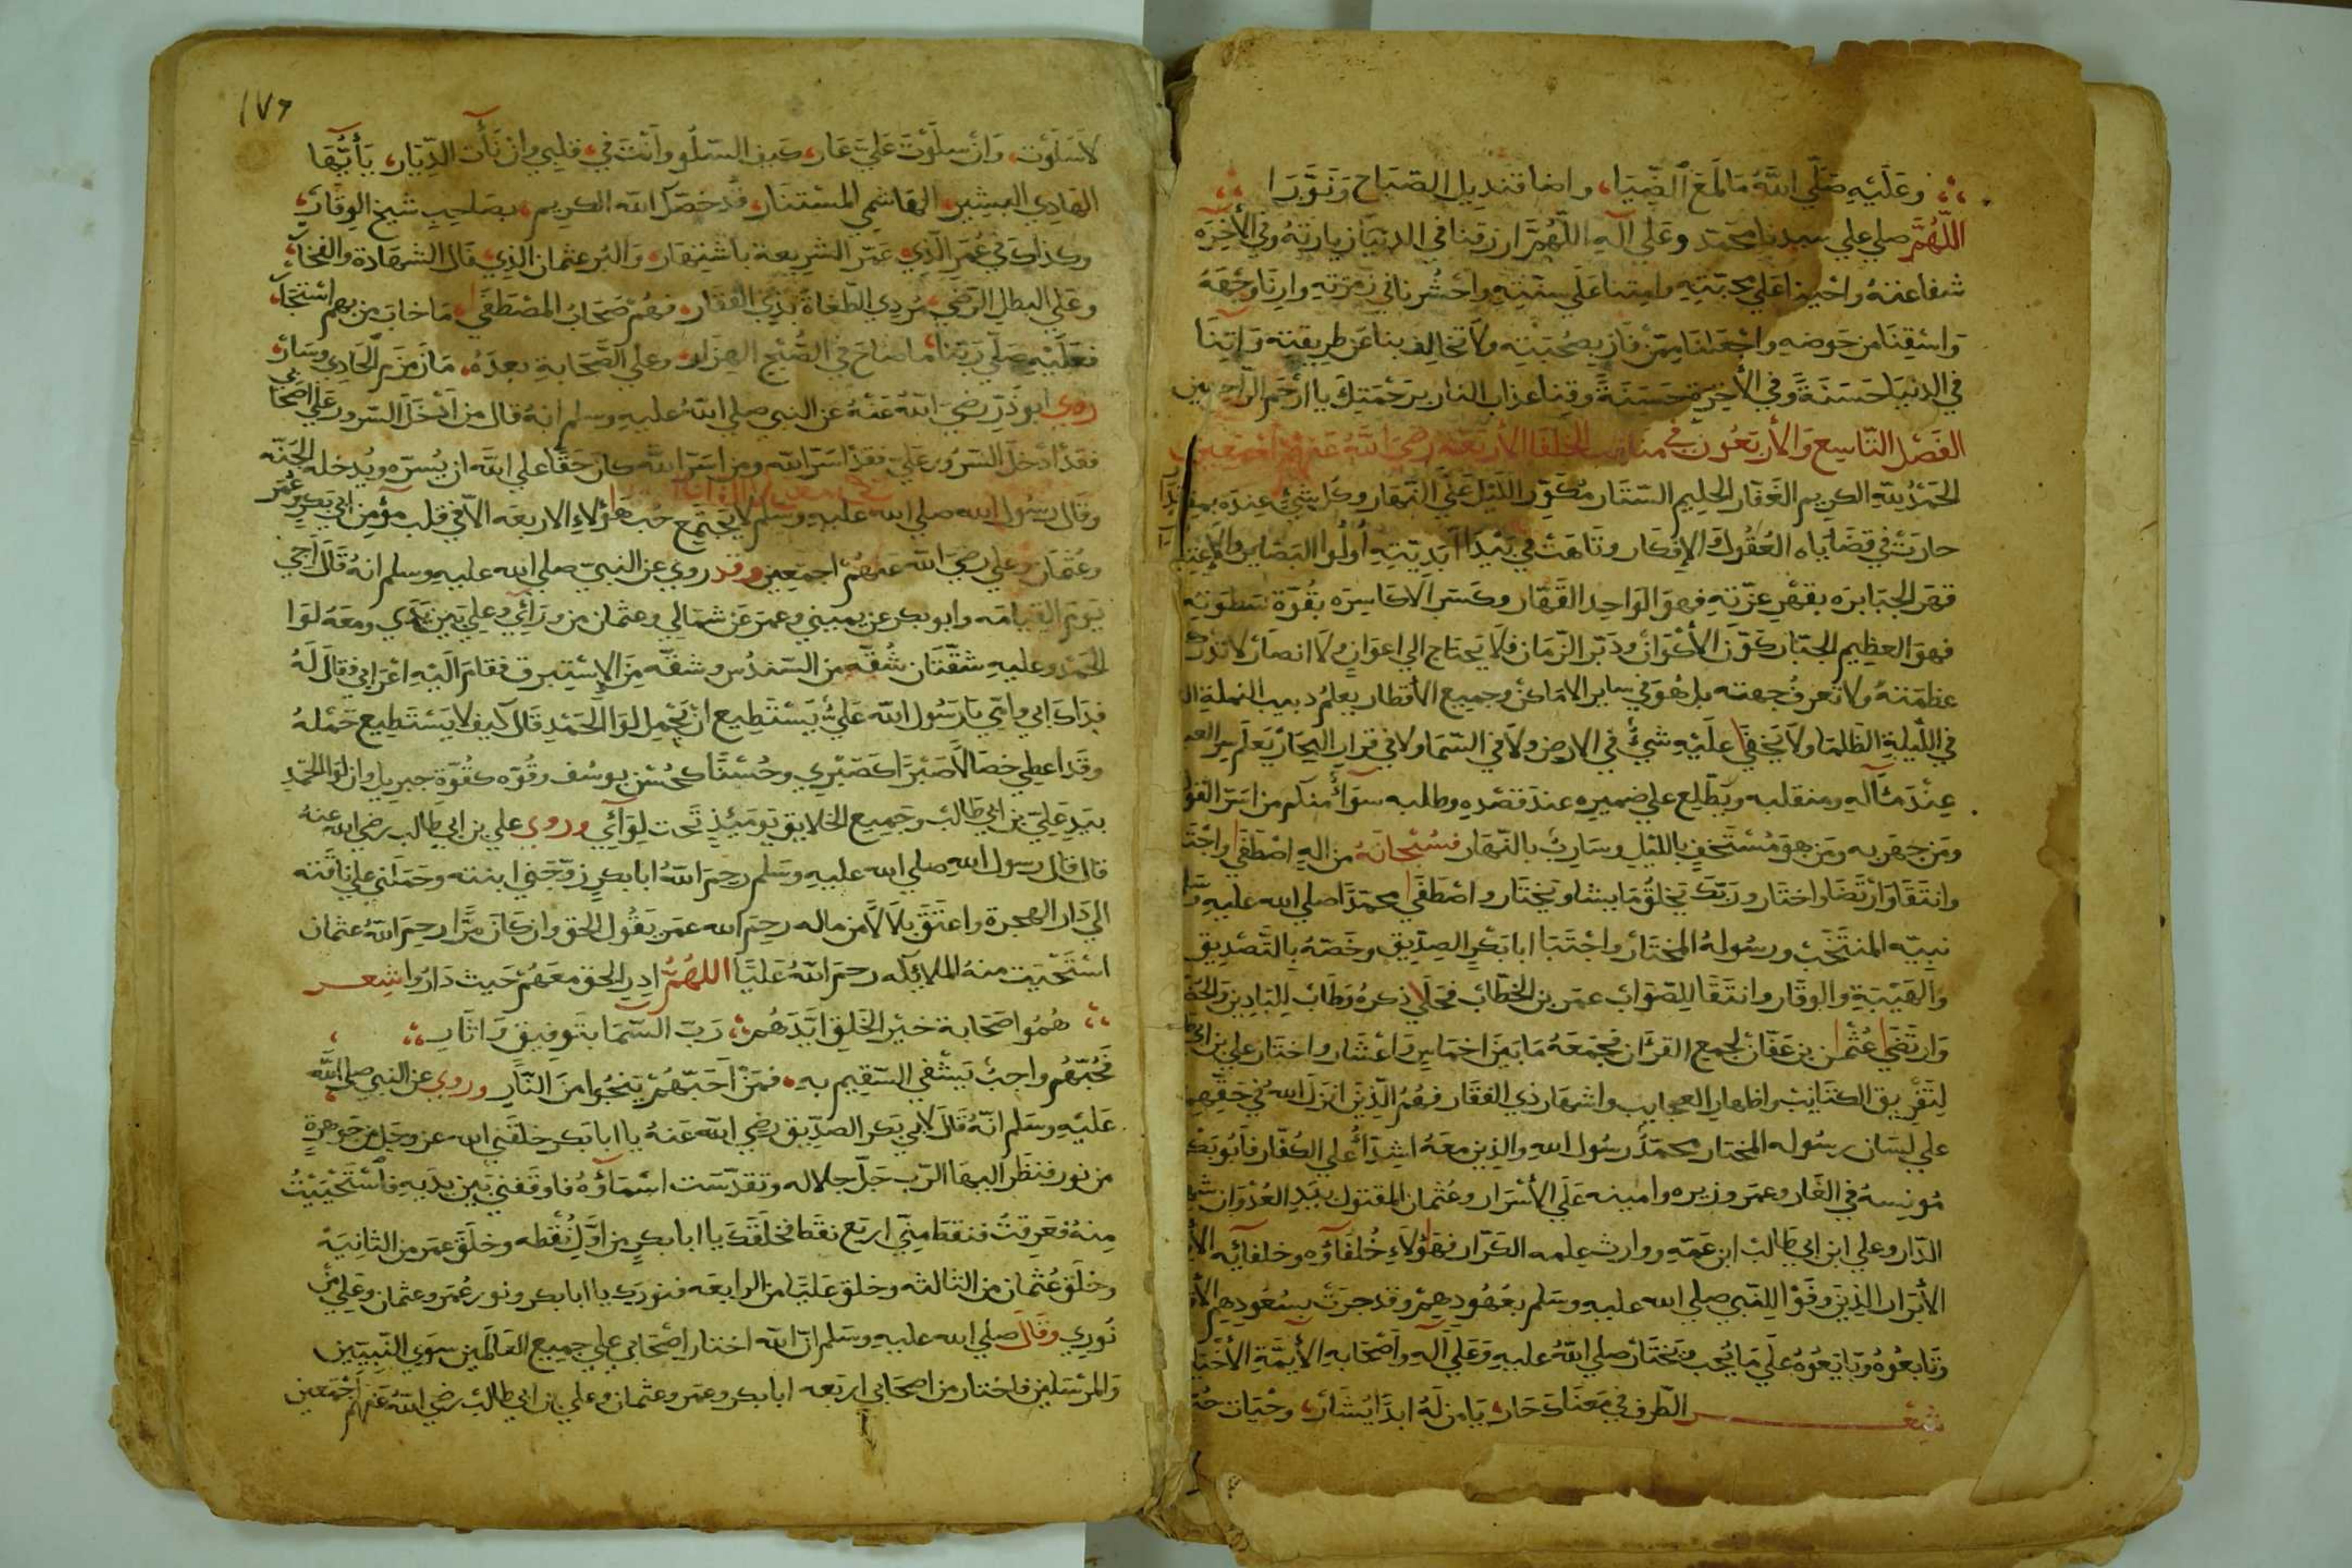 وعليه صلى الله ما لمع الضيا، واضا قنديل الصباح ونورا
اللهم صلي علي سيدنا محمد وعلي آله اللهم ارزقنا في الدنيا زيارته وفي الآخره
شفاعته واحينا علي محبته وامتنا علي سنته واحشرنا في زمرته وارنا وجهه
واسقنا من حوضه واجعلنا ممن فاز بصحبته ولا تخالف بنا عن طريقته وآتنا
في الدنيا حسنة وفي الآخرة حسنة وقنا عذاب النار برحمتك يا ارحم الراحمين
الفصل التاسع والأربعون في مناقب الخلفا الأربعه رضي الله عنهم أجمعين
الحمد لله الكريم الغفار الحليم الستار مكور الليل علي النهار وكل شيء عنده
حارت في قضاياه العقول والافكار وتاهت في بيدا ابديته أولوا البصاير والإعتبار
قهر الجبابره بقهر عزته فهو الواحد القهار وكسر الاكاسره بقوة سطوته
فهو العظيم الجبار كون الأكوان ودبر الزمان فلا يحتاج الي اعوان ولا انصار لا تدرك
عظمته ولا تعرف جهته بل هو في ساير الاماكن وجميع الأقطار يعلم دبيب النملة
في الليلة الظلما ولا يخفي عليه شيء في الارض ولا في السما ولا في قرار البحار يعلم سر العبد
عند مثآله ومنقلبه ويطلع علي ضميره عند قصده وطلبه سوآء منكم من اسر القول
ومن جهر به ومن هو مستخف بالليل وسارب بالنهار فسبحانه من اله اصطفي واجتبا
وانتقا وارتضا واختار وربك يخلق ما يشا ويختار واصطفي محمدا صلي الله عليه وسلم
نبيه المنتخب ورسوله المختار واجتبا ابا بكر الصديق وخصه بالتصديق
والهيبة والوقار وانتقا للصواب عمر بن الخطاب فحلا ذكره وطاب للبادين والحضار
وارتضي عثمن بن عفان لجمع القرآن فجمعه ما بين اخماس واعشار واختار علي بن ابي طالب
لتفريق الكتايب واظهار العجايب واشهار ذي الفقار فهم الذين انزل الله في حقهم
علي لسان رسوله المختار محمد رسول الله والذين معه اشدآء علي الكفار فأبو بكر
مونسه في الغار وعمر وزيره وامينه علي الأسرار وعثمان المقتول بيد العدوان شهيد
الدار وعلي ابن ابي طالب ابن عمه ووارث علمه الكرار فهؤلاء خلفاؤه وخلفايه
الأبرار الذين وفوا للنبي صلي الله عليه وسلم بعهودهم وقد جرت بسعودهم
وتابعوه وبايعوه علي ما يحب ويختار صلي الله عليه وعلي آله وأصحابه الأيمة الأخيار
شعر الطرف في معناك حار، يا من له ابدا يشار، وحيات
١٧٦
لا سلوت، وان سلوت علي عار، كيف السلو وأنت في، قلبي وان نأت الديار، يأيها
الهادي البشير، الهاشمي المستنار، قد خصك الله الكريم، بصاحب شيخ الوقار،
وكذاك في عمر الذي، عمر الشريعة باشتهار، والبر عثمان الذي، قال الشهادة والفخار،
وعلي البطل الرضي، مردي الطغاة بذي الفقار، فهم صحاب المصطفي، ما خاب من بهم استجار،
فعليه صلي ربنا، ما صاح في الصبح الهزار، وعلي الصحابة بعده، ما زمزم الحادي وسار،
روي أبو ذر رضي الله عنه عن النبي صلي الله عليه وسلم انه قال من أدخل السرور علي أصحابي
فقد أدخل السرور علي فقد اسر الله ومن اسر الله كان حقا علي الله ان يسره ويدخله الجنه
وقال رسول الله صلي الله عليه وسلم لا يجتمع حب هؤلاء الاربعه الا في قلب مؤمن ابي بكر وعمر
وعثمان وعلي رضي الله عنهم اجمعين وقد روي عن النبي صلي الله عليه وسلم انه قال أجي
يوم القيامه وابو بكر عن يميني وعمر عن شمالي وعثمان من ورآئي وعلي بين يدي ومعه لوا
الحمد وعليه شقتان شقه من السندس وشقه من الاستبرق فقام اليه اعرابي فقال له
فداك ابي وامي يا رسول الله علي يستطيع ان يحمل لوا الحمد قال كيف لا يستطيع حمله
وقد اعطي خصالا صبرا كصبري وحسنا كحسن يوسف وقوه كقوة جبريل وان لوا الحمد
بيد علي بن ابي طالب وجميع الخلايق يوميذ تحت لوآئي وروي علي بن ابي طالب رضي الله عنه
قال قال رسول الله صلي الله عليه وسلم رحم الله ابا بكر زوجني ابنته وحملني علي ناقته
الي دار الهجرة واعتق بلالا من ماله رحم الله عمر يقول الحق وان كان مرا رحم الله عثمان
استحيت منه الملايكه رحم الله عليا اللهم ادر الحق معهم حيث داروا شعر
همو اصحابة خير الخلق ايدهم، رب السما بتوفيق واثار
فحبهم واجب يشفي السقيم به، فمن أحبهم ينجوا من النار وروي عن النبي صلي الله
عليه وسلم انه قال لابي بكر الصديق رضي الله عنه يا ابا بكر خلقني الله عز وجل من جوهرة
من نور فنظر اليها الرب جل جلاله وتقدست اسمآؤه فاوقفني بين يديه فاستحييت
منه فعرقت فنقط مني اربع نقط فخلقك يا ابا بكر من اول نقطه وخلق عمر من الثانية
وخلق عثمان من الثالثه وخلق عليا من الرابعه فنورك يا ابا بكر ونور عمر وعثمان وعلي من
نوري وقال صلي الله عليه وسلم ان الله اختار اصحابي علي جميع العالمين سوي النبيين
والمرسلين فاختار من اصحابي اربعه ابا بكر وعمر وعثمان وعلي بن ابي طالب رضي الله عنهم أجمعين